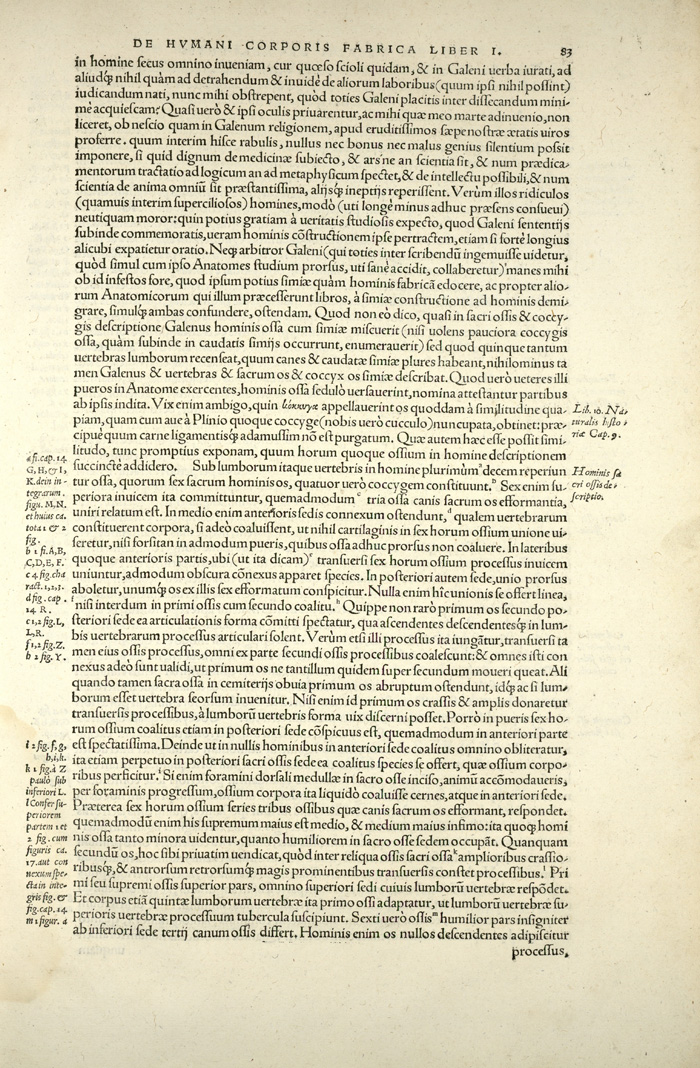 DE HVMANI CORPORIS FABRICA LIBER I.
83
in homine secus omnino inueniam, cur quæso scioli quidam, & in Galeni uerba iurati, ad
aliudq́; nihil quàm ad detrahendum & inuidẽ de aliorum laboribus (quum ipsi nihil possint)
iudicandum nati, nunc mihi obstrepent, quòd toties Galeni placitis inter dissecandum mini-
mè acquiescam? Quasi uerò & ipsi oculis priuarentur, ac mihi quæ meo marte adinuenio, non
liceret, ob nescio quam in Galenum religionem, apud eruditissimos sæpe nostræ ætatis uiros
proferre. quum interim hisce rabulis, nullus nec bonus nec malus genius silentium possit
imponere, si quid dignum de medicinæ subiecto, & ars ne an scientia sit, & num prædica-
mentorum tractatio ad logicum an ad metaphysicum spectet, & de intellectu possibili, & num
scientia de anima omniũ sit præstantissima, alijsq́; ineptijs reperissent. Verùm illos ridiculos
(quamuis interim superciliosos) homines, modò (uti longè minus adhuc præsens consueui)
neutiquam moror: quin potius gratiam à ueritatis studiosis expecto, quod Galeni sententijs
subinde commemoratis, ueram hominis cõstructionem ipse pertractem, etiam si fortè longius
alicubi expatietur oratio. Neq; arbitror Galeni (qui toties inter scribendũ ingemuisse uidetur,
quòd simul cum ipso Anatomes studium prorsus, uti sanè accidit, collaberetur) manes mihi
ob id infestos fore, quod ipsum potius simiæ quàm hominis fabricã edocere, ac propter alio-
rum Anatomicorum qui illum præcesserunt libros, à simiæ constructione ad hominis demi-
grare, simulq́; ambas confundere, ostendam. Quod non eò dico, quasi in sacri ossis & coccy-
gis descriptione, Galenus hominis ossa cum simiæ miscuerit (nisi uolens pauciora coccygis
ossa, quàm subinde in caudatis simijs occurrunt, enumerauerit) sed quod quinque tantum
uertebras lumborum recenseat, quum canes & caudatæ simiæ plures habeant, nihilominus ta
men Galenus & uertebras & sacrum os & coccyx os simiæ describat. Quod uerò ueteres illi
pueros in Anatome exercentes, hominis ossa sedulò uersauerint, nomina attestantur partibus
ab ipsis indita. Vix enim ambigo, quin κόκκυγα appellauerint os quoddam à similitudine qua-
piam, quam cum aue à Plinio quoque coccyge (nobis uerò cucculo) nuncupata, obtinet: præ-
cipuè quum carne ligamentisq́; adamussim nõ est purgatum. Quæ autem hæc esse possit simi-
litudo, tunc promptius exponam, quum horum quoque ossium in homine descriptionem
succinctè addidero. Sub lumborum itaque uertebris in homine plurimùm a decem reperiun
tur ossa, quorum sex sacrum hominis os, quatuor uerò coccygem constituunt. b Sex enim su-
periora inuicem ita committuntur, quemadmodum c tria ossa canis sacrum os efformantia,
uniri relatum est. In medio enim anterioris sedis connexum ostendunt, d qualem uertebrarum
constituerent corpora, si adeò coaluissent, ut nihil cartilaginis in sex horum ossium unione ui-
seretur, nisi forsitan in admodum pueris, quibus ossa adhuc prorsus non coaluere. In lateribus
quoque anterioris partis, ubi (ut ita dicam) e transuersi sex horum ossium processus inuicem
uniuntur, admodum obscura cõnexus apparet species. In posteriori autem sede, unio prorsus
aboletur, unumq́; os ex illis sex efformatum conspicitur. Nulla enim hîc unionis se offert linea,
nisi interdum in primi ossis cum secundo coalitu. h Quippe non rarò primum os secundo po-
steriori sede ea articulationis forma cõmitti spectatur, qua ascendentes descendentesq́; in lum-
bis uertebrarum processus articulari solent. Verùm etsi illi processus ita iungãtur, transuersi ta
men eius ossis processus, omni ex parte secundi ossis processibus coalescunt: & omnes isti con
nexus adeò sunt ualidi, ut primum os ne tantillum quidem super secundum moueri queat. Ali
quando tamen sacra ossa in cemiterijs obuia primum os abruptum ostendunt, idq́; ac si lum-
borum esset uertebra seorsum inuenitur. Nisi enim id primum os crassis & amplis donaretur
transuersis processibus, à lumborũ uertebris forma uix discerni posset. Porrò in pueris sex ho-
rum ossium coalitus etiam in posteriori sede cõspicuus est, quemadmodum in anteriori parte
est spectatissima. Deinde ut in nullis hominibus in anteriori sede coalitus omnino obliteratur,
ita etiam perpetuo in posteriori sacri ossis sede ea coalitus species se offert, quæ ossium corpo-
ribus perficitur. i Si enim foramini dorsali medullæ in sacro osse inciso, animũ accõmodaueris,
per foraminis progressum, ossium corpora ita liquidò coaluisse cernes, atque in anteriori sede.
Præterea sex horum ossium series tribus ossibus quæ canis sacrum os efformant, respondet.
quemadmodũ enim his supremum maius est medio, & medium maius infimo: ita quoq́; homi
nis ossa tanto minora uidentur, quanto humiliorem in sacro osse sedem occupãt. Quanquam
secundũ os, hoc sibi priuatim uendicat, quòd inter reliqua ossis sacri ossa k amplioribus crassio-
ribusq́;, & antrorsum retrorsumq́; magis prominentibus transuersis constet processibus. l Pri
mi seu supremi ossis superior pars, omnino superiori sedi cuiuis lumborũ uertebræ respõdet.
Et corpus etiã quintæ lumborum uertebræ ita primo ossi adaptatur, ut lumborũ uertebræ su-
perioris uertebræ processuum tubercula suscipiunt. Sexti uerò ossis m humilior pars insigniter
ab inferiori sede tertij canum ossis differt. Hominis enim os nullos descendentes adipiscitur
processus,
Lib. 10. Na-
turalis histo-
riæ Cap. 9.
Hominis sa
cri ossis de-
scriptio.
a fi. cap. 14.
G, H, & I,
K. dein in-
tegrarum
figu. M, N.
et huius ca.
tota 1 & 2
fig.
b 1 fi. A, B,
C, D, E, F.
c 4 fig. cha
ract. 1, 2, 3.
d fig. cap.
14 R.
e 1, 2 fig. L,
L, R.
f 1, 2 fig. Z.
h 2 fig. Y.
i 2 fig. f, g,
h, i, k.
k 1 fig. à Z
paulò sub
inferiori L.
l Confer su-
periorem
partem 1 et
2 fig. cum
figuris ca.
17. aut con
nexum spe-
cta in inte-
gris fig. &
fig. cap. 14.
m 1 figur. a